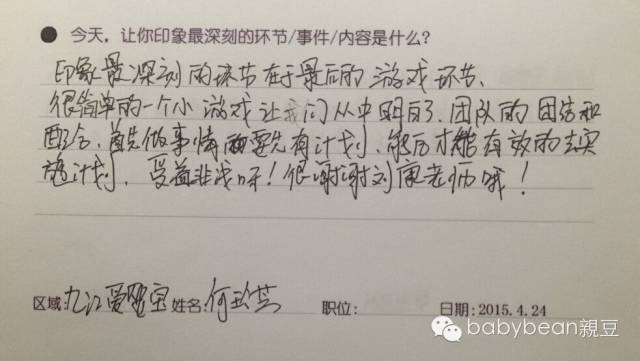 ● 今天，让你印象最深刻的环节/事件/内容是什么？
印象最深刻的环节在于最后的游戏环节、
很简单的一个小游戏让我们从中明白了、团队的团结和
配合、首先做事情要先有计划、然后才能有效的去实
施计划、受益非浅呀！很谢谢刘康老师哦！
区域:九江爱婴宝 姓名:何 职位: 日期:2015.4.24
babybean親豆